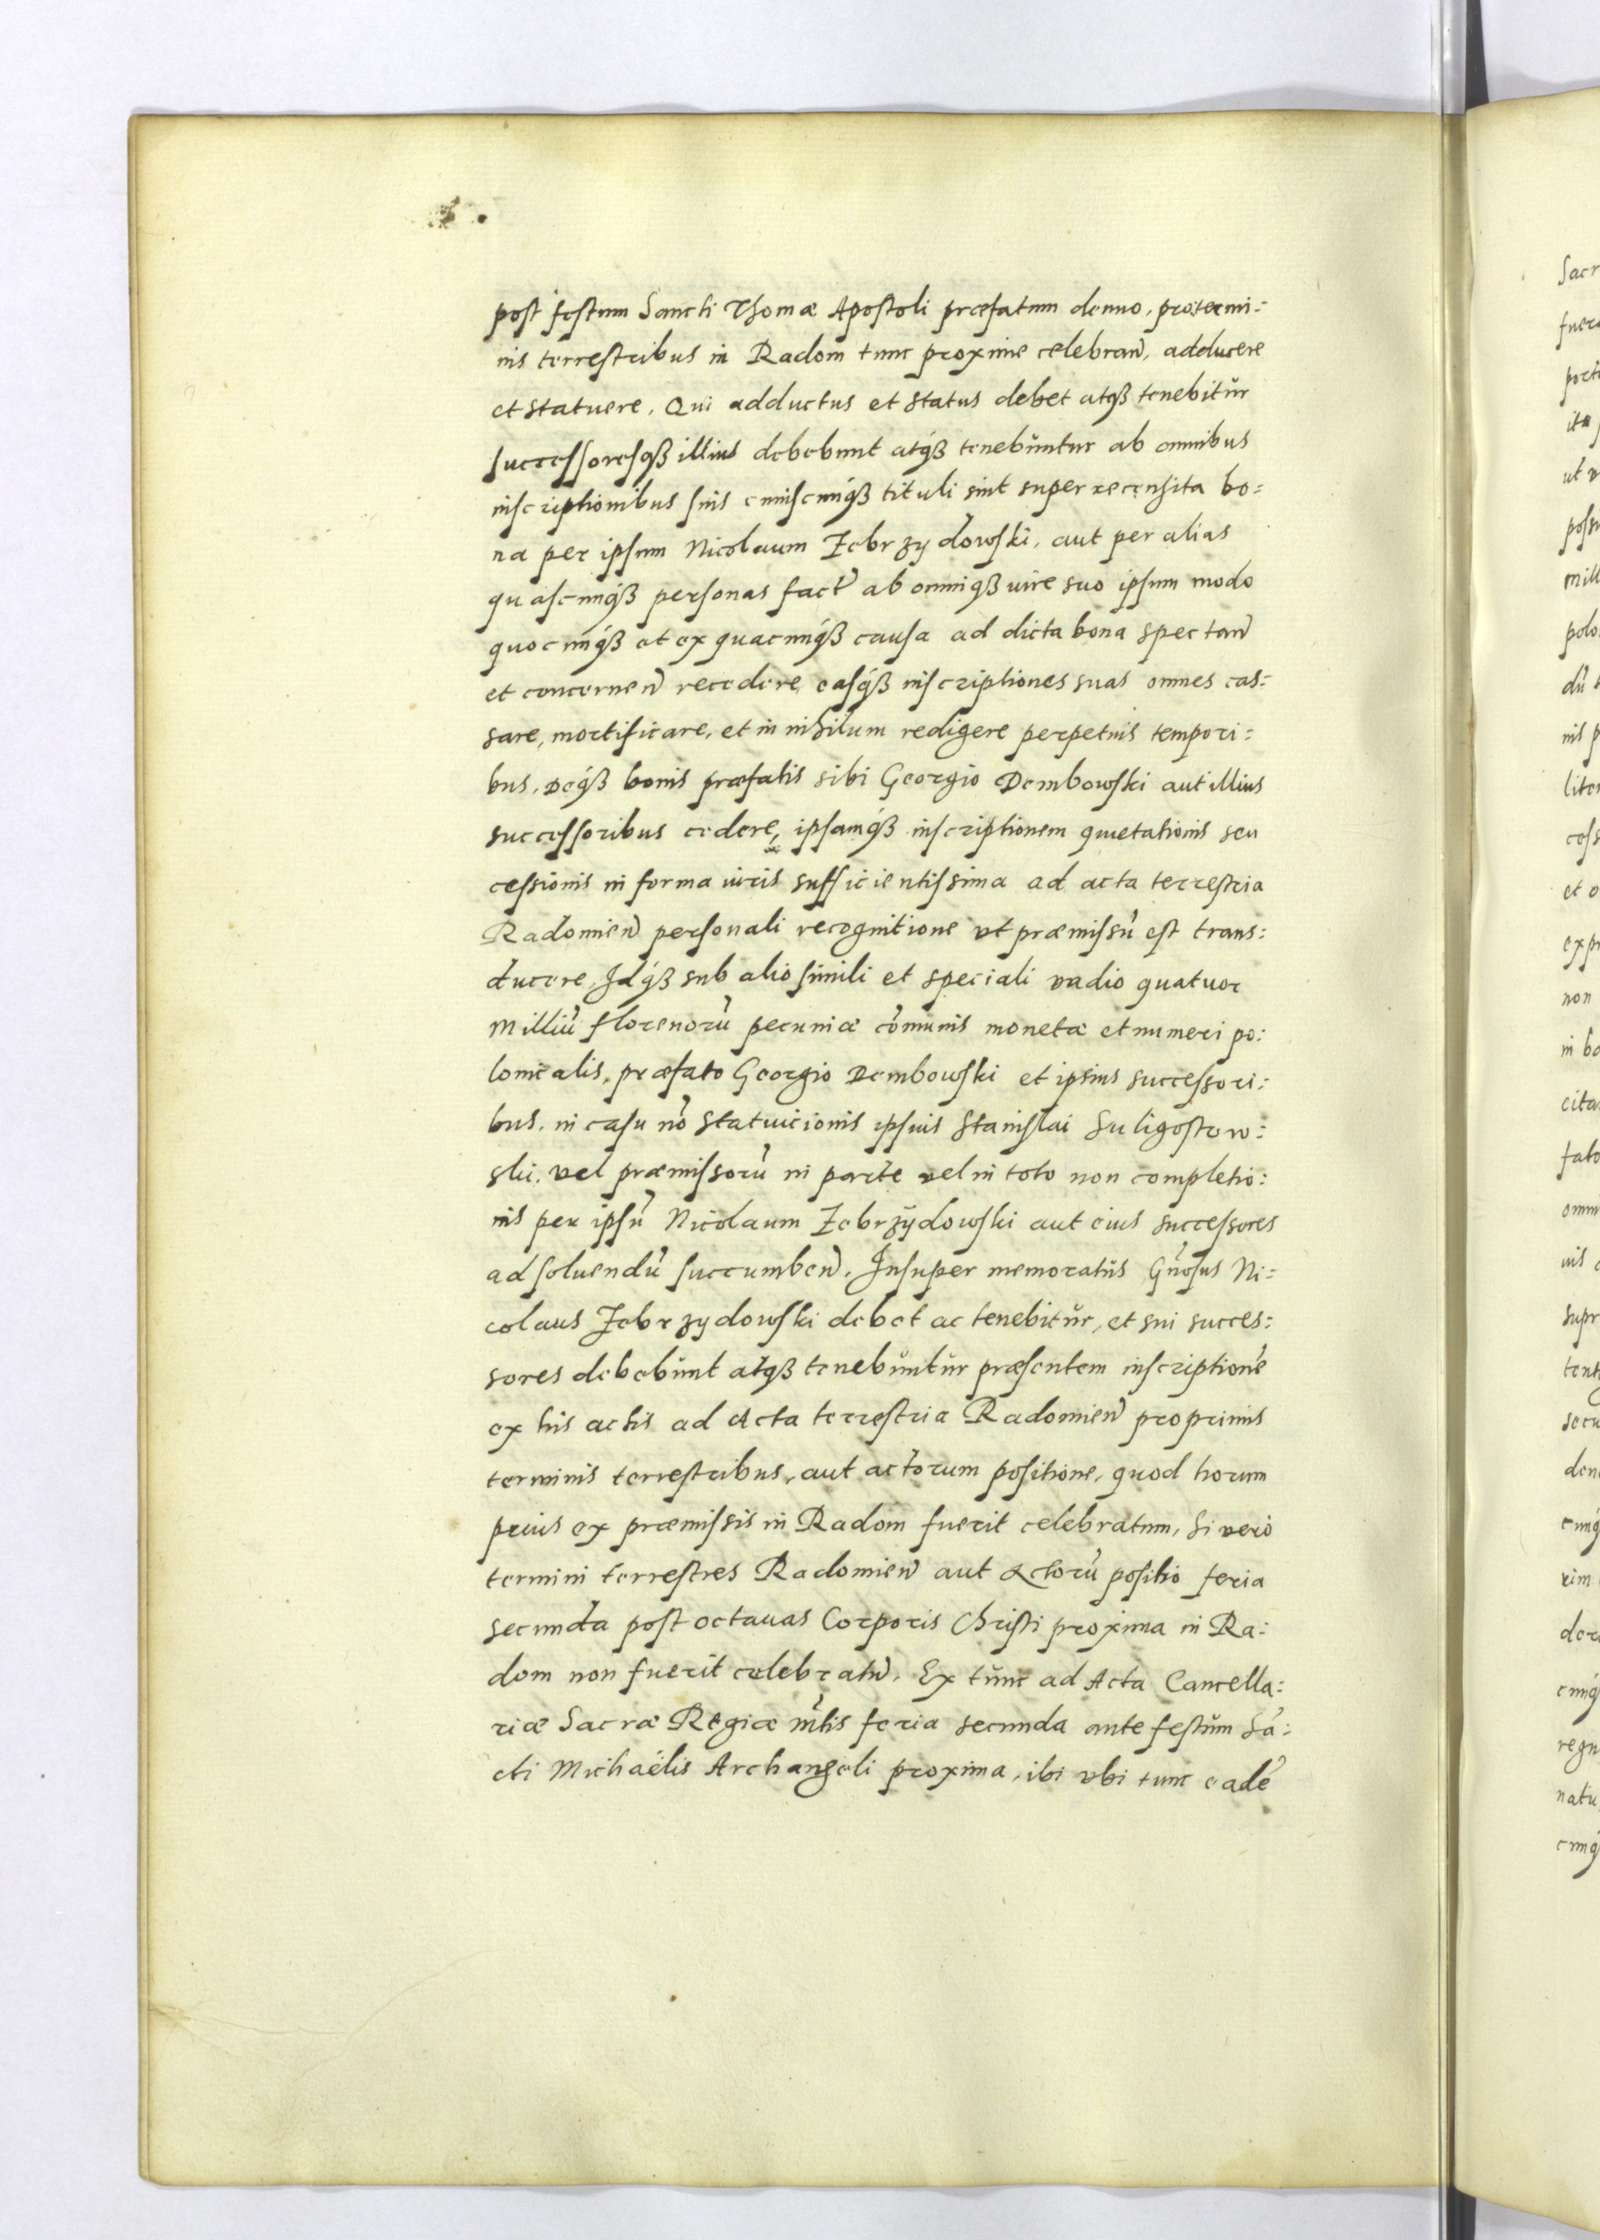 post festum Sancti Thomæ Apostoli præfatum denuo, pro termi:
nis terrestribus in Radom tunc proxime celebran̄, adducere
et statuere. Qui adductus et status debet atqß tenebitŭr
successoresqß illius debebunt atqß tenebŭntur ab omnibus
inscriptionibus suis cuiuscunqß tituli sint super recensita bo:
na per ipsum Nicolaum Zebrzydowski, aut per alias
quascunqß personas fact̄ ab omniqß iure suo ipsum modo
quocunqß et ex quacunqß causa ad dicta bona spectan̄
et concernen̄ recedere, easqß inscriptiones suas omnes cas:
sare, mortificare, et in nihilum redigere perpetuis tempori:
bus, Deqß bonis præfatis sibi Georgio Dembowski aut illius
successoribus cedere, ipsamqß inscriptionem quietationis seu
cessionis in forma iuris sufficientissima ad acta terrestria
Radomien̄ personali recognitione ut præmissū est trans:
ducere, Idqß sub alio simili et speciali vadio quatuor
Milliū florenorū pecuniæ cōmunis monetæ et numeri po:
lonicalis, præfato Georgio Dembowski et ipsius successori:
bus, in casu nō statuicionis ipsius Stanislai Suligostow:
ski, vel præmissorū in parte vel in toto non completio:
nis per ipsū Nicolaum Zebrzydowski aut eius successores
ad soluendū succumben̄. Insuper memoratus Gn̄osus Ni:
colaus Zebrzydowski debet ac tenebitŭr, et sui succes:
sores debebŭnt atqß tenebŭntŭr præsentem inscriptionē
ex his actis ad Acta terrestria Radomien̄ pro primis
terminis terrestribus, aut actorum positione, quod horum
prius ex præmissis in Radom fuerit celebratum, Si vero
termini terrestres Radomien̄ aut Actorū positio feria
secunda post octauas Corporis Christi proxima in Ra:
dom non fuerit celebratū. Ex tŭnc ad Acta Cancella:
riæ Sacræ Regiæ Mtis feria secunda ante festŭm Sā:
cti Michaëlis Archangeli proxima, ibi vbi tunc eadē